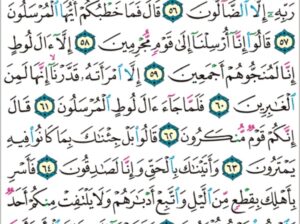 رَبِّهِۦٓ إِلَّا ٱلضَّآلُّونَ ٥٦ قَالَ فَمَا خَطۡبُكُمۡ أَيُّهَا ٱلۡمُرۡسَلُونَ
٥٧ قَالُوٓاْ إِنَّآ أُرۡسِلۡنَآ إِلَىٰ قَوۡمٖ مُّجۡرِمِينَ ٥٨ إِلَّآ ءَالَ لُوطٍ
إِنَّا لَمُنَجُّوهُمۡ أَجۡمَعِينَ ٥٩ إِلَّا ٱمۡرَأَتَهُۥ قَدَّرۡنَآ إِنَّهَا لَمِنَ
ٱلۡغَٰبِرِينَ ٦٠ فَلَمَّا جَآءَ ءَالَ لُوطٍ ٱلۡمُرۡسَلُونَ ٦١ قَالَ
إِنَّكُمۡ قَوۡمٞ مُّنكَرُونَ ٦٢ قَالُواْ بَلۡ جِئۡنَٰكَ بِمَا كَانُواْ فِيهِ
يَمۡتَرُونَ ٦٣ وَأَتَيۡنَٰكَ بِٱلۡحَقِّ وَإِنَّا لَصَٰدِقُونَ ٦٤ فَأَسۡرِ
بِأَهۡلِكَ بِقِطۡعٖ مِّنَ ٱلَّيۡلِ وَٱتَّبِعۡ أَدۡبَٰرَهُمۡ وَلَا يَلۡتَفِتۡ مِنكُمۡ أَحَدٞ